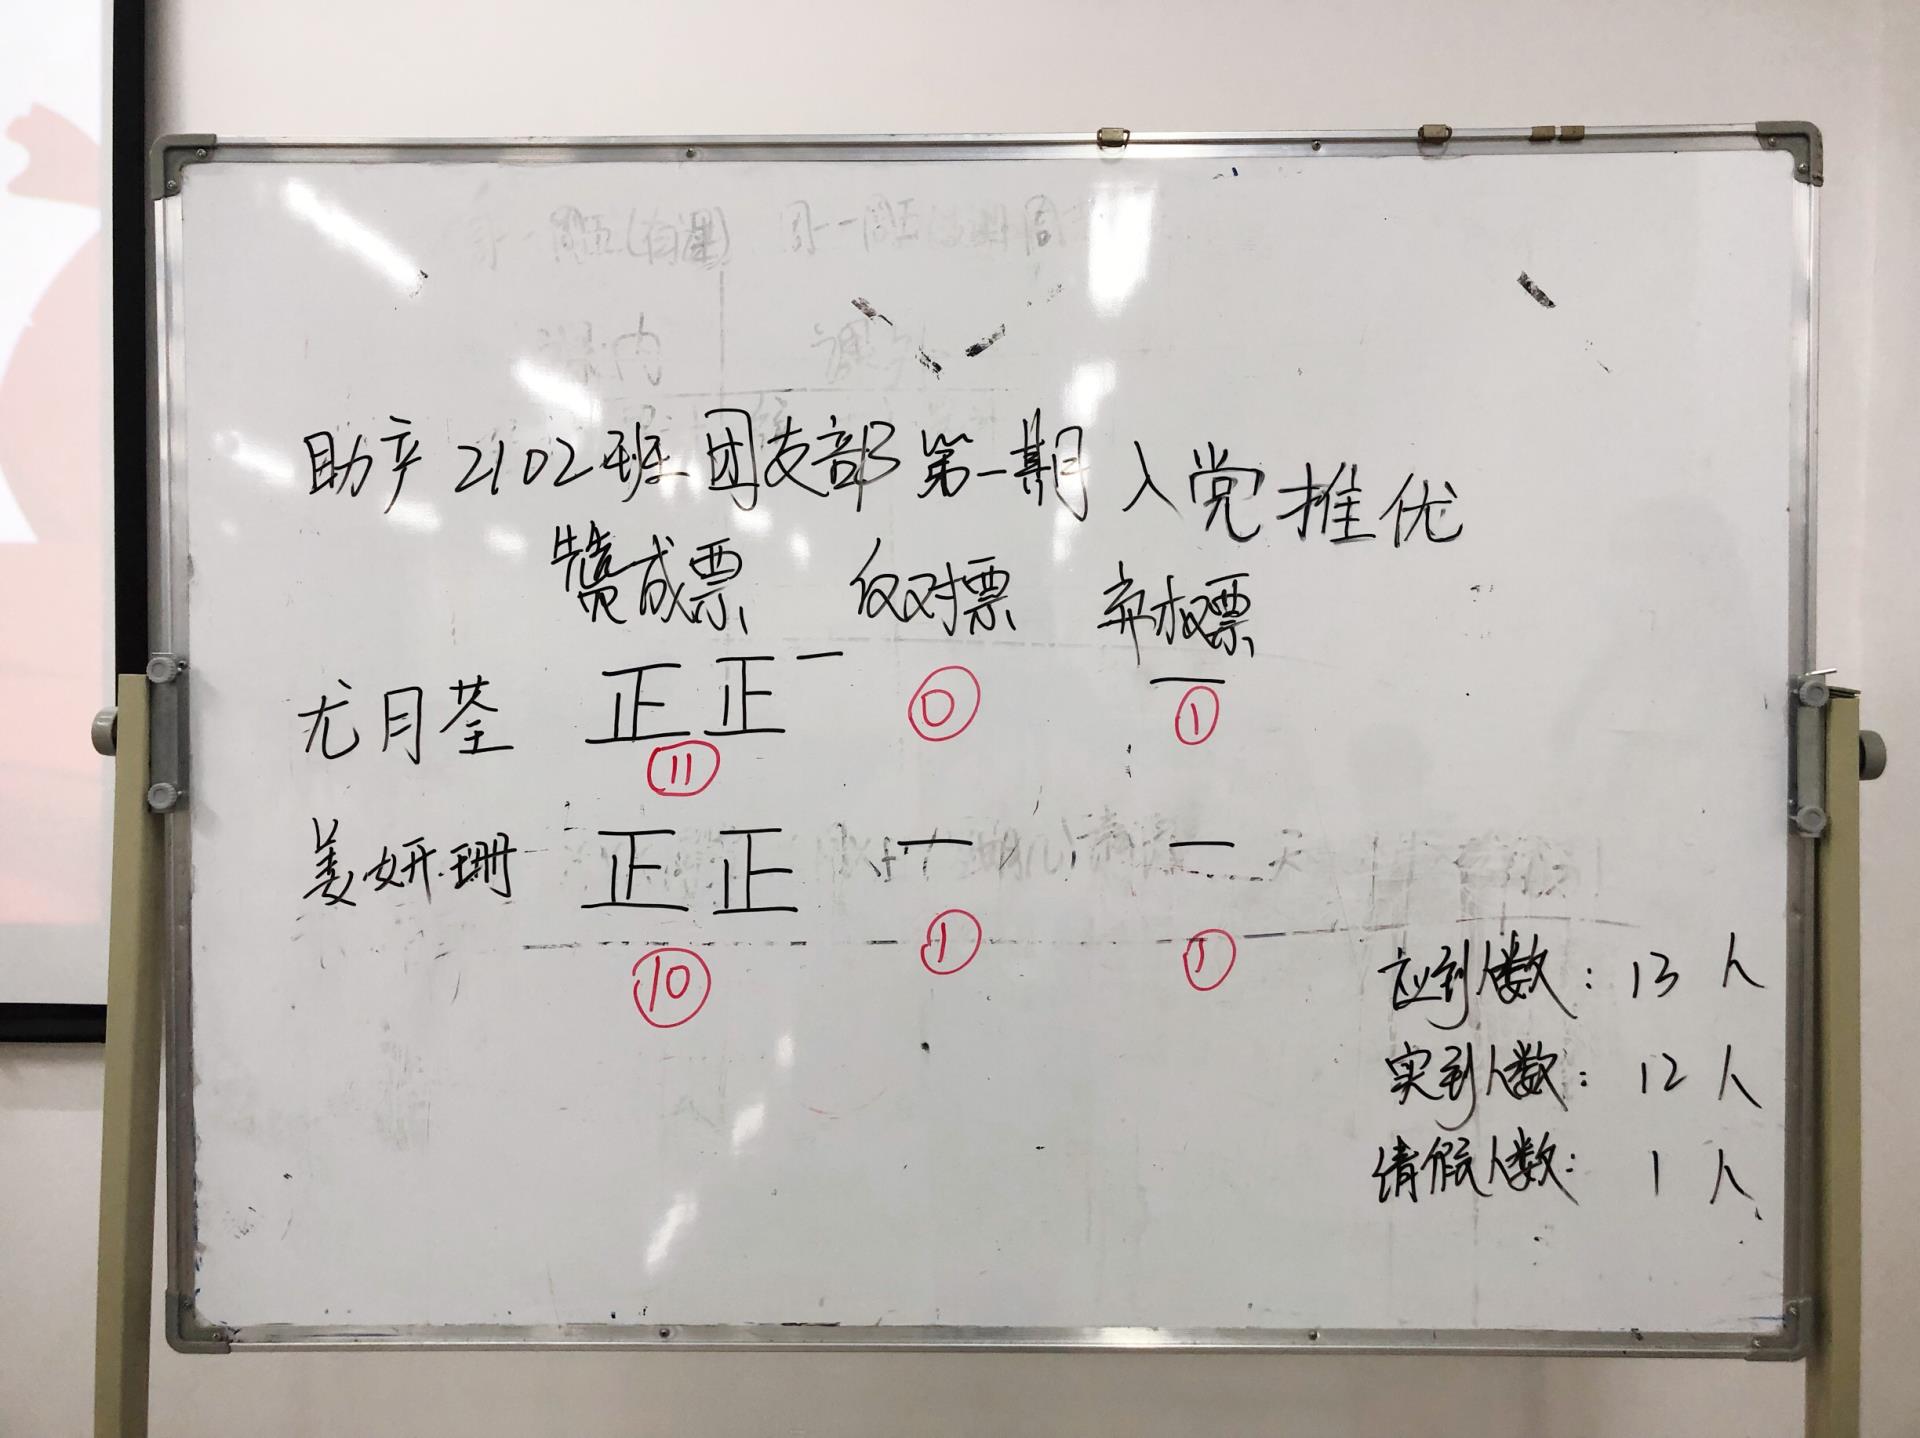 助产2102班团支部第一期入党推优
赞成票 反对票 弃权票
尤月荃 正正一 0 一 1
11
姜妍珊 正正 一 一
10 1 1
应到人数：13人
实到人数：12人
请假人数：1人